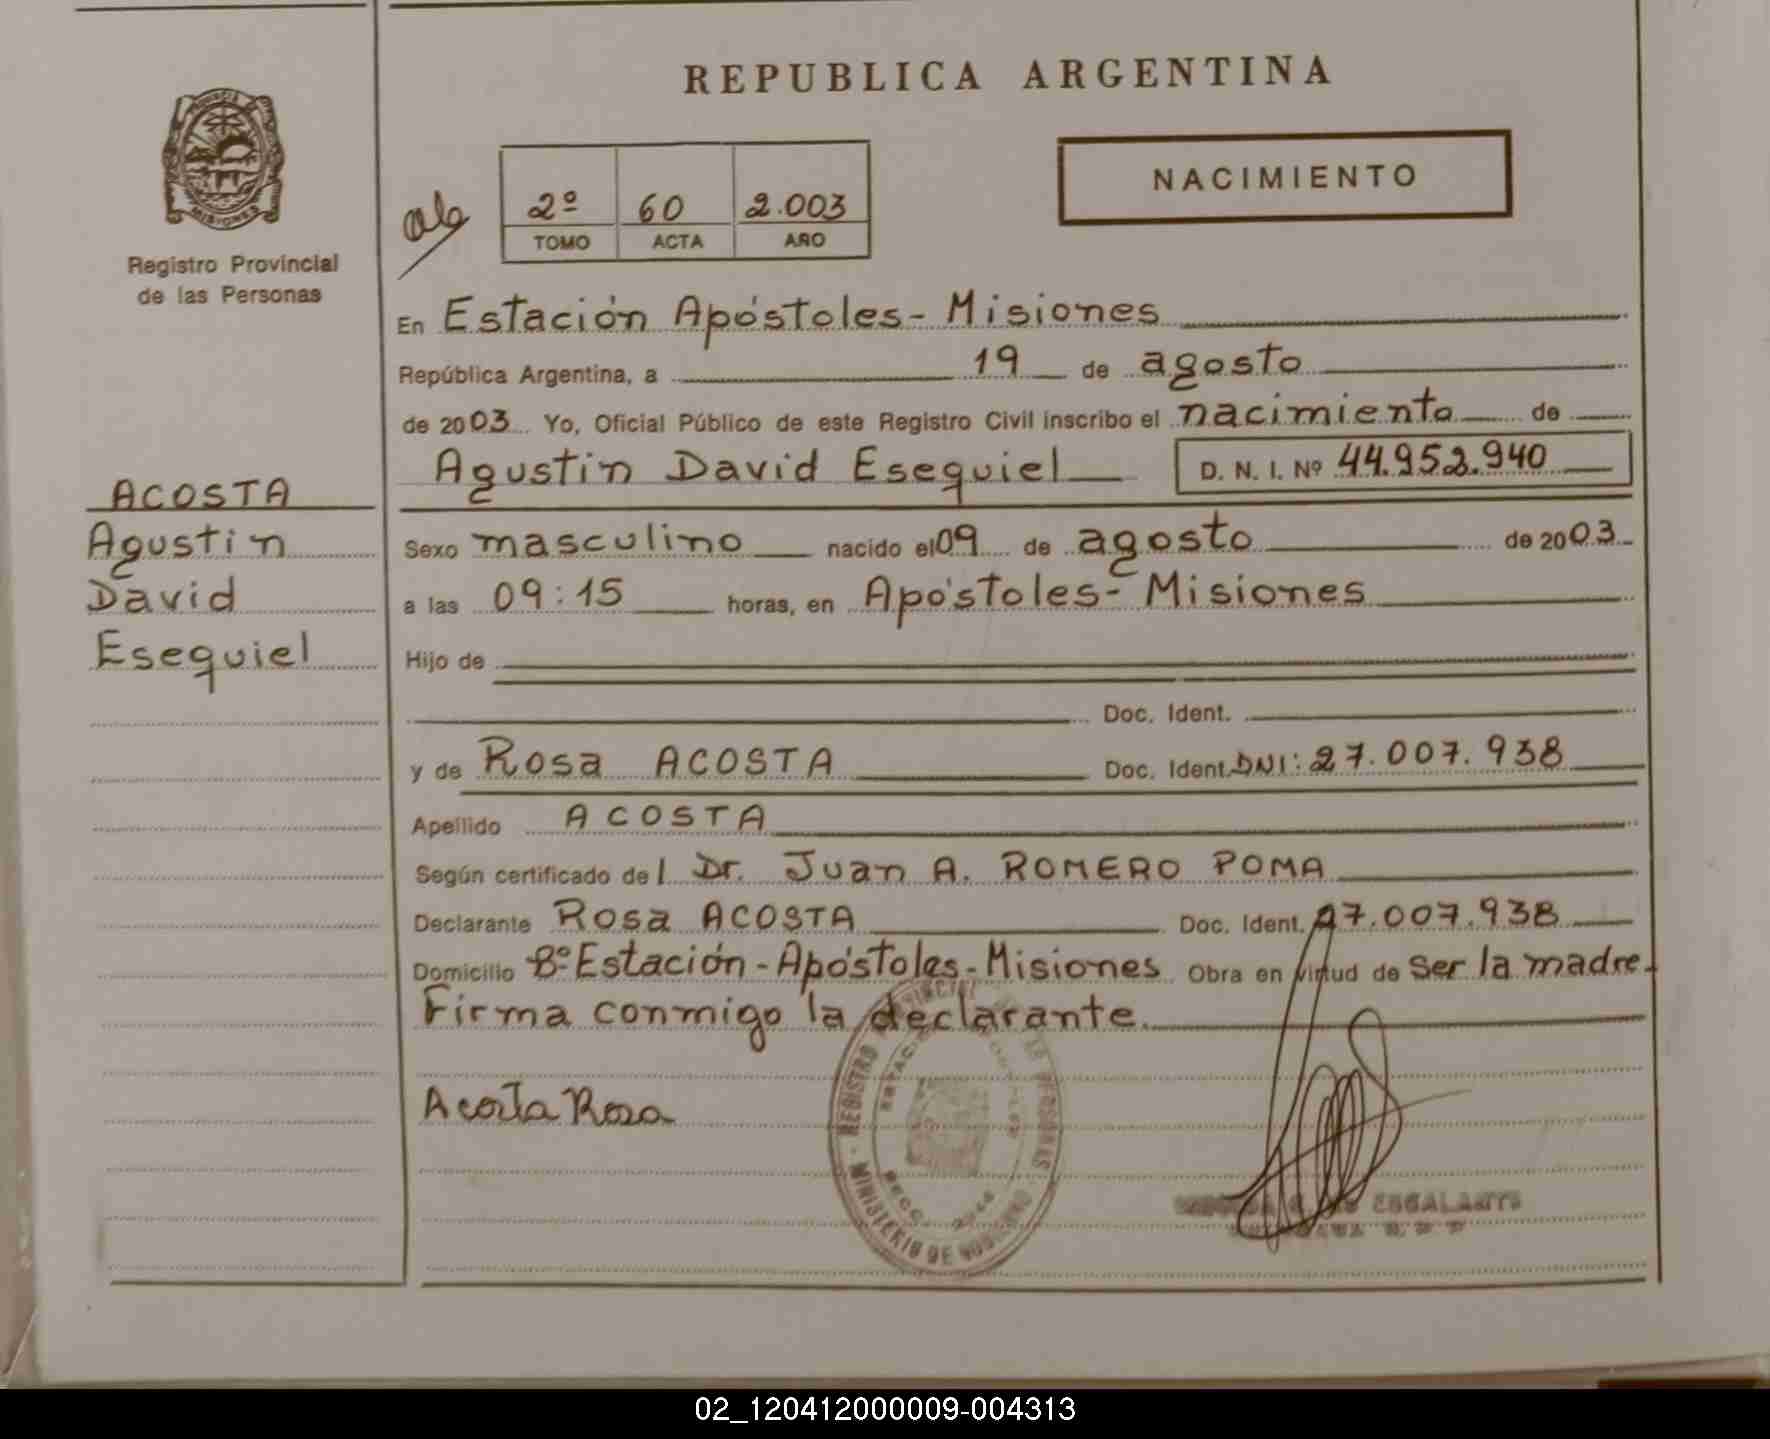 REPUBLICA ARGENTINA
NACIMIENTO
2º 60 2.003
TOMO ACTA AÑO
Registro Provincial
de las Personas
MISIONES
En Estación Apóstoles - Misiones
República Argentina, a 19 de agosto
de 2003 Yo, Oficial Público de este Registro Civil inscribo el nacimiento de
Agustin David Esequiel D. N. I. Nº 44.952.940
ACOSTA
Agustin
David
Esequiel
Sexo masculino nacido el 09 de agosto de 2003
a las 09:15 horas, en Apóstoles - Misiones
Hijo de
Doc. Ident.
y de Rosa ACOSTA Doc. Ident. DNI: 27.007.938
Apellido ACOSTA
Según certificado del Dr. Juan A. ROMERO POMA
Declarante Rosa ACOSTA Doc. Ident. 27.007.938
Domicilio Bº Estación - Apóstoles - Misiones Obra en virtud de ser la madre.
Firma conmigo la declarante.
Acosta Rosa
REGISTRO PROVINCIAL DE LAS PERSONAS
MINISTERIO DE GOBIERNO
ESCALANTE
02_120412000009-004313